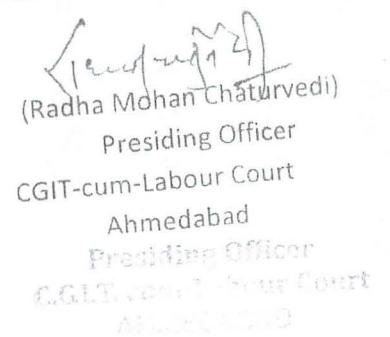 (Radha Mohan Chaturvedi)
Presiding Officer
CGIT-cum-Labour Court
Ahmedabad
Presiding Officer
C.G.I.T. Labour Court